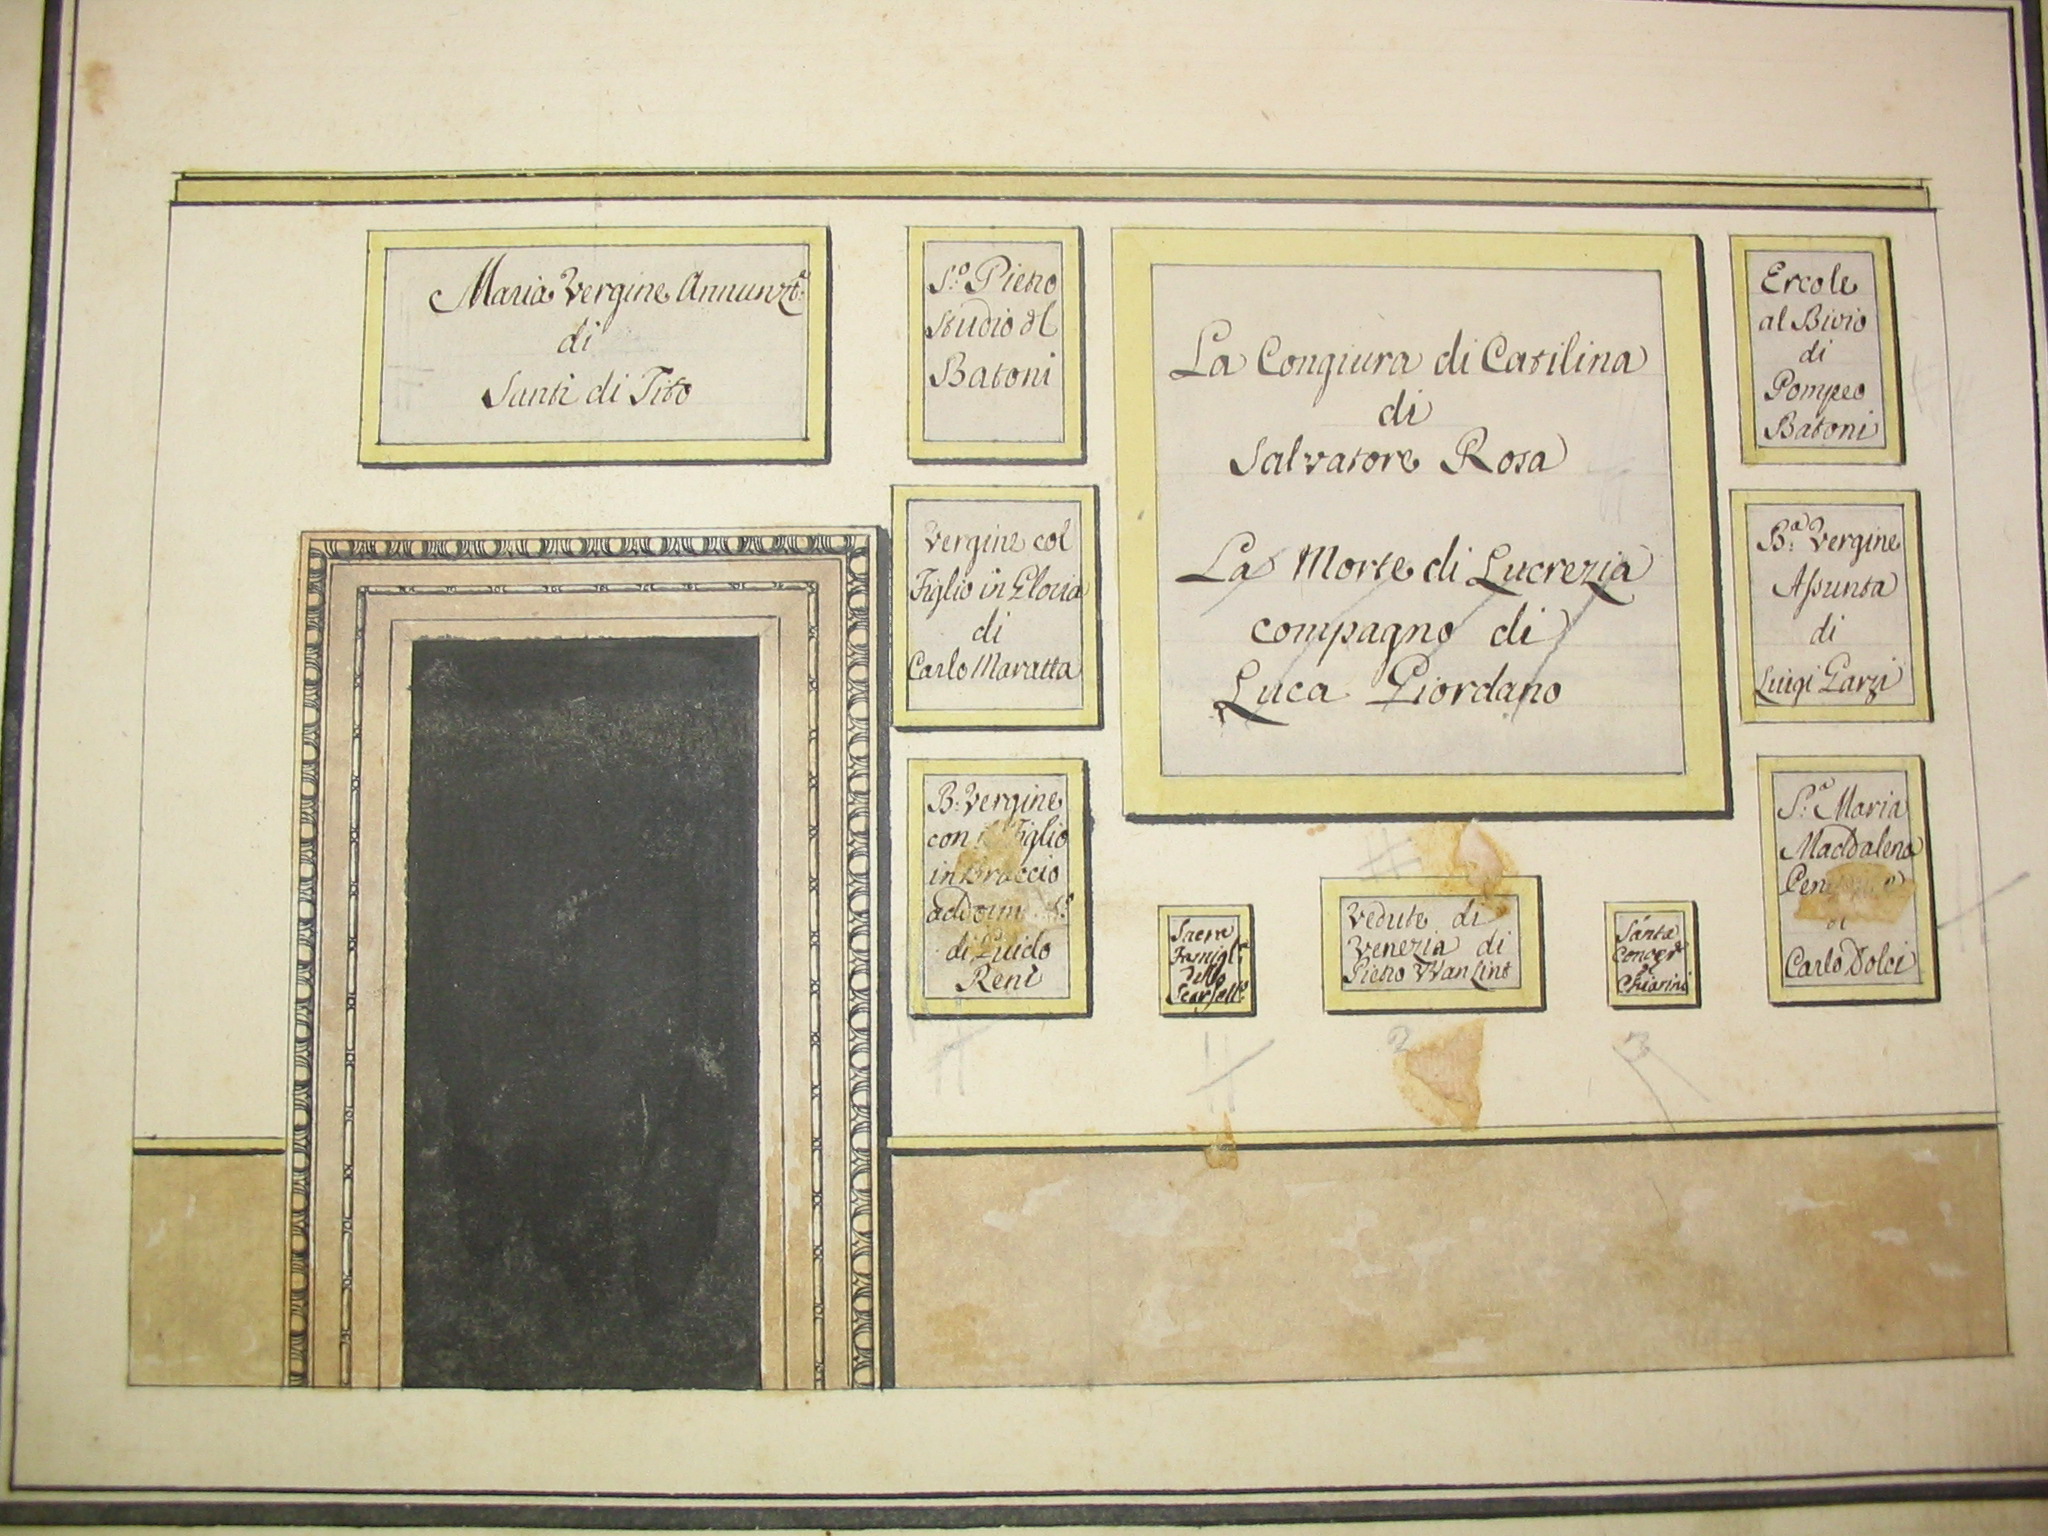 Maria Vergine Annunzt.ª
di
Santi di Tito
S.º Pietro
Studio dl
Batoni
La Congiura di Catilina
di
Salvatore Rosa
La Morte di Lucrezia
compagno di
Luca Giordano
Ercole
al Bivio
di
Pompeo
Batoni
Vergine col
Figlio in Gloria
di
Carlo Maratta
B.ª Vergine
Assunta
di
Luigi Garzi
B. Vergine
con Figlio
in Braccio
di Guido
Reni
Sacra
Famigl.ª
Vedute di
Venezia di
Pietro WanLint
Santa
Chiarini
S.ª Maria
Maddalena
di
Carlo Dolci
2
3